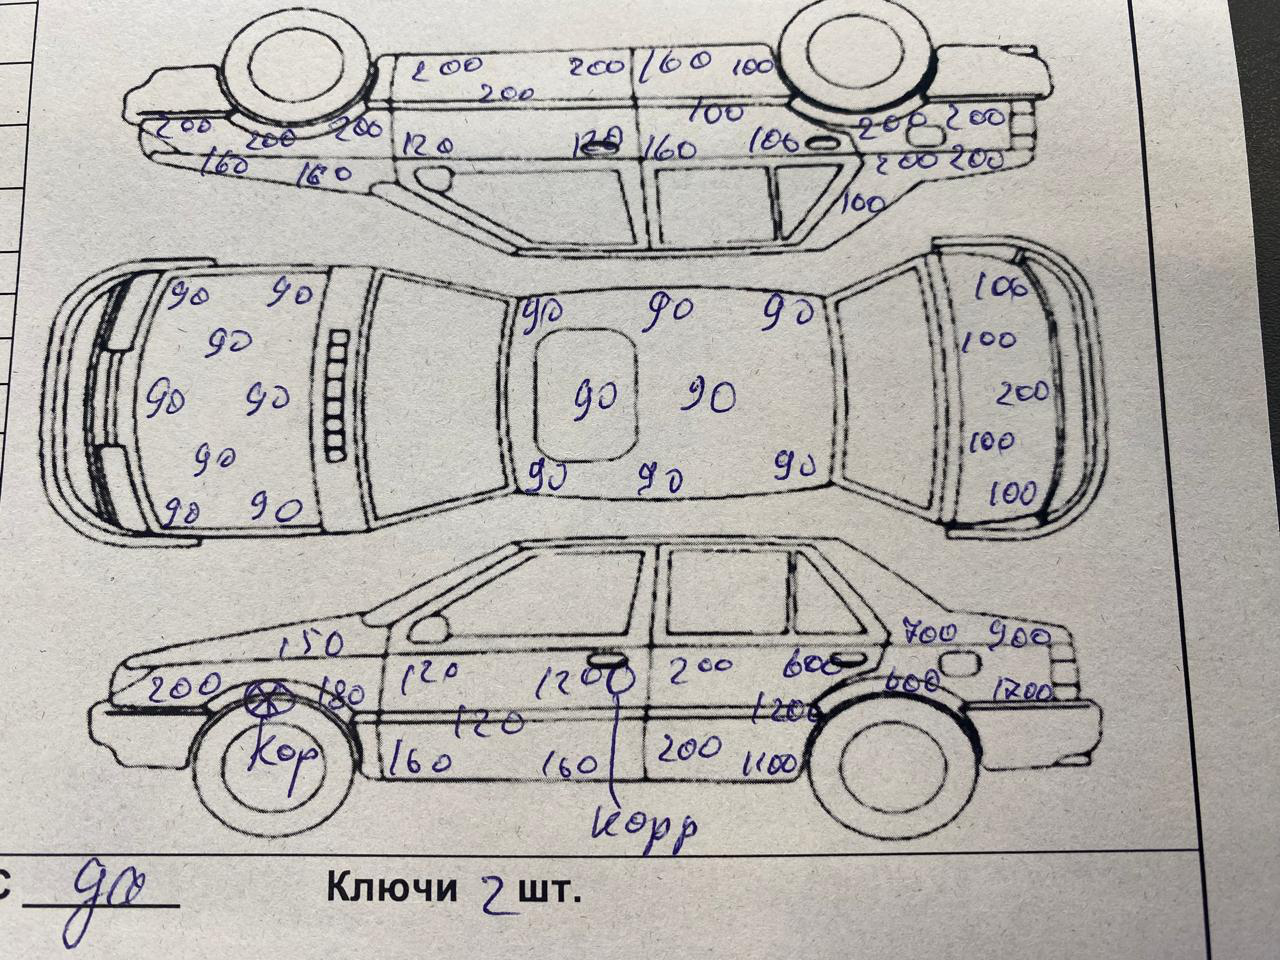 200 200 160 100
200 100
200 200 200 120 120 160 100 200 200
160 160 200 200
100
90 90 90 90 90 100
90 100
90 90 90 90 200
90 100
90 90 90 90 90 100
150 700 900
200 180 120 120 200 600 600 1700
120 1200
Кор 160 160 200 1100
корр
С да Ключи 2 шт.